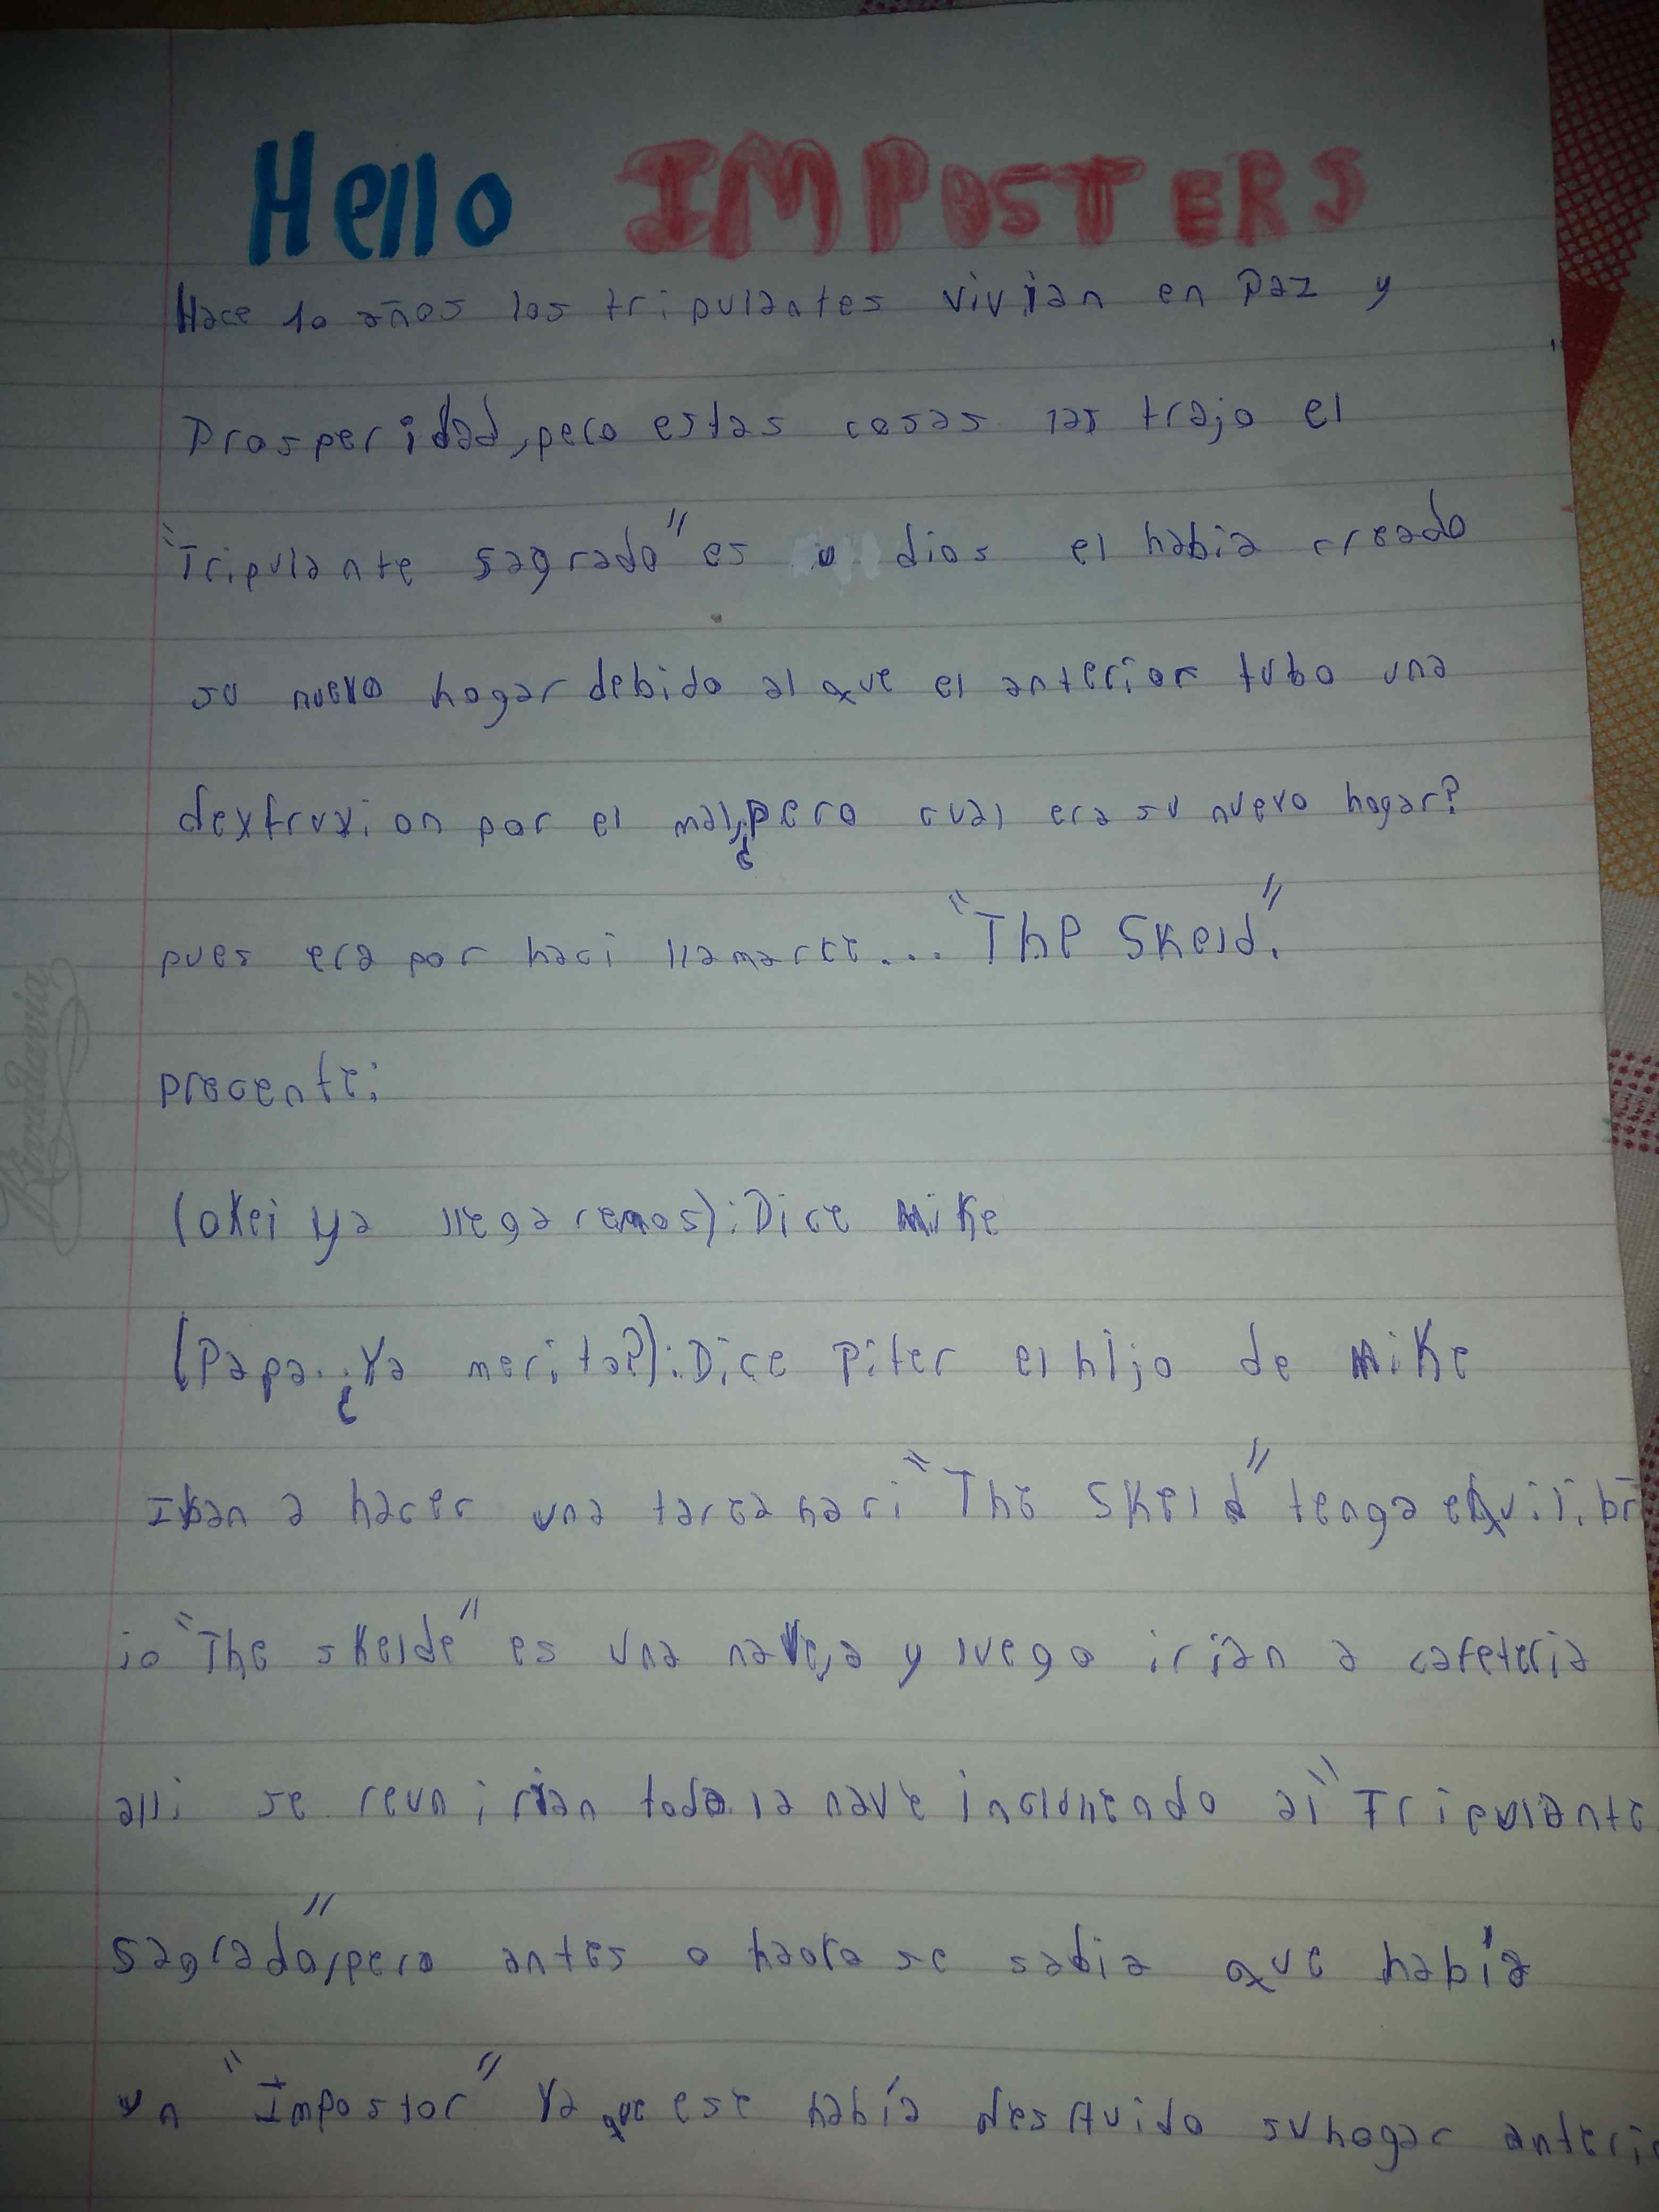 Hello IMPOSTERS
Hace 10 años los tripulantes vivian en Paz y
Prosperidad, pero estas cosas las trajo el
"Tripulante sagrado" es u dios el habia creado
su nuevo hogar debido al que el anterior tubo una
dextruxion por el mal, ¿pero cual era su nuevo hogar?
pues era por haci llamarce... "The Skeld".
precente:
(okei ya llegaremos): Dice Mike
(Papa.. ¿Ya merito?): Dice Piter el hijo de Mike
Iban a hacer una tarea haci "The Skeld" tenga equilibr
io "The skelde" es una nave,a y luego irian a cafeteria
alli se reunirian toda la nave incluhendo al "Tripulante
Sagrado", pero antes o haora se sabia que había
un "Impostor" Ya que ese había destruido su hogar anterio
Rivadavia